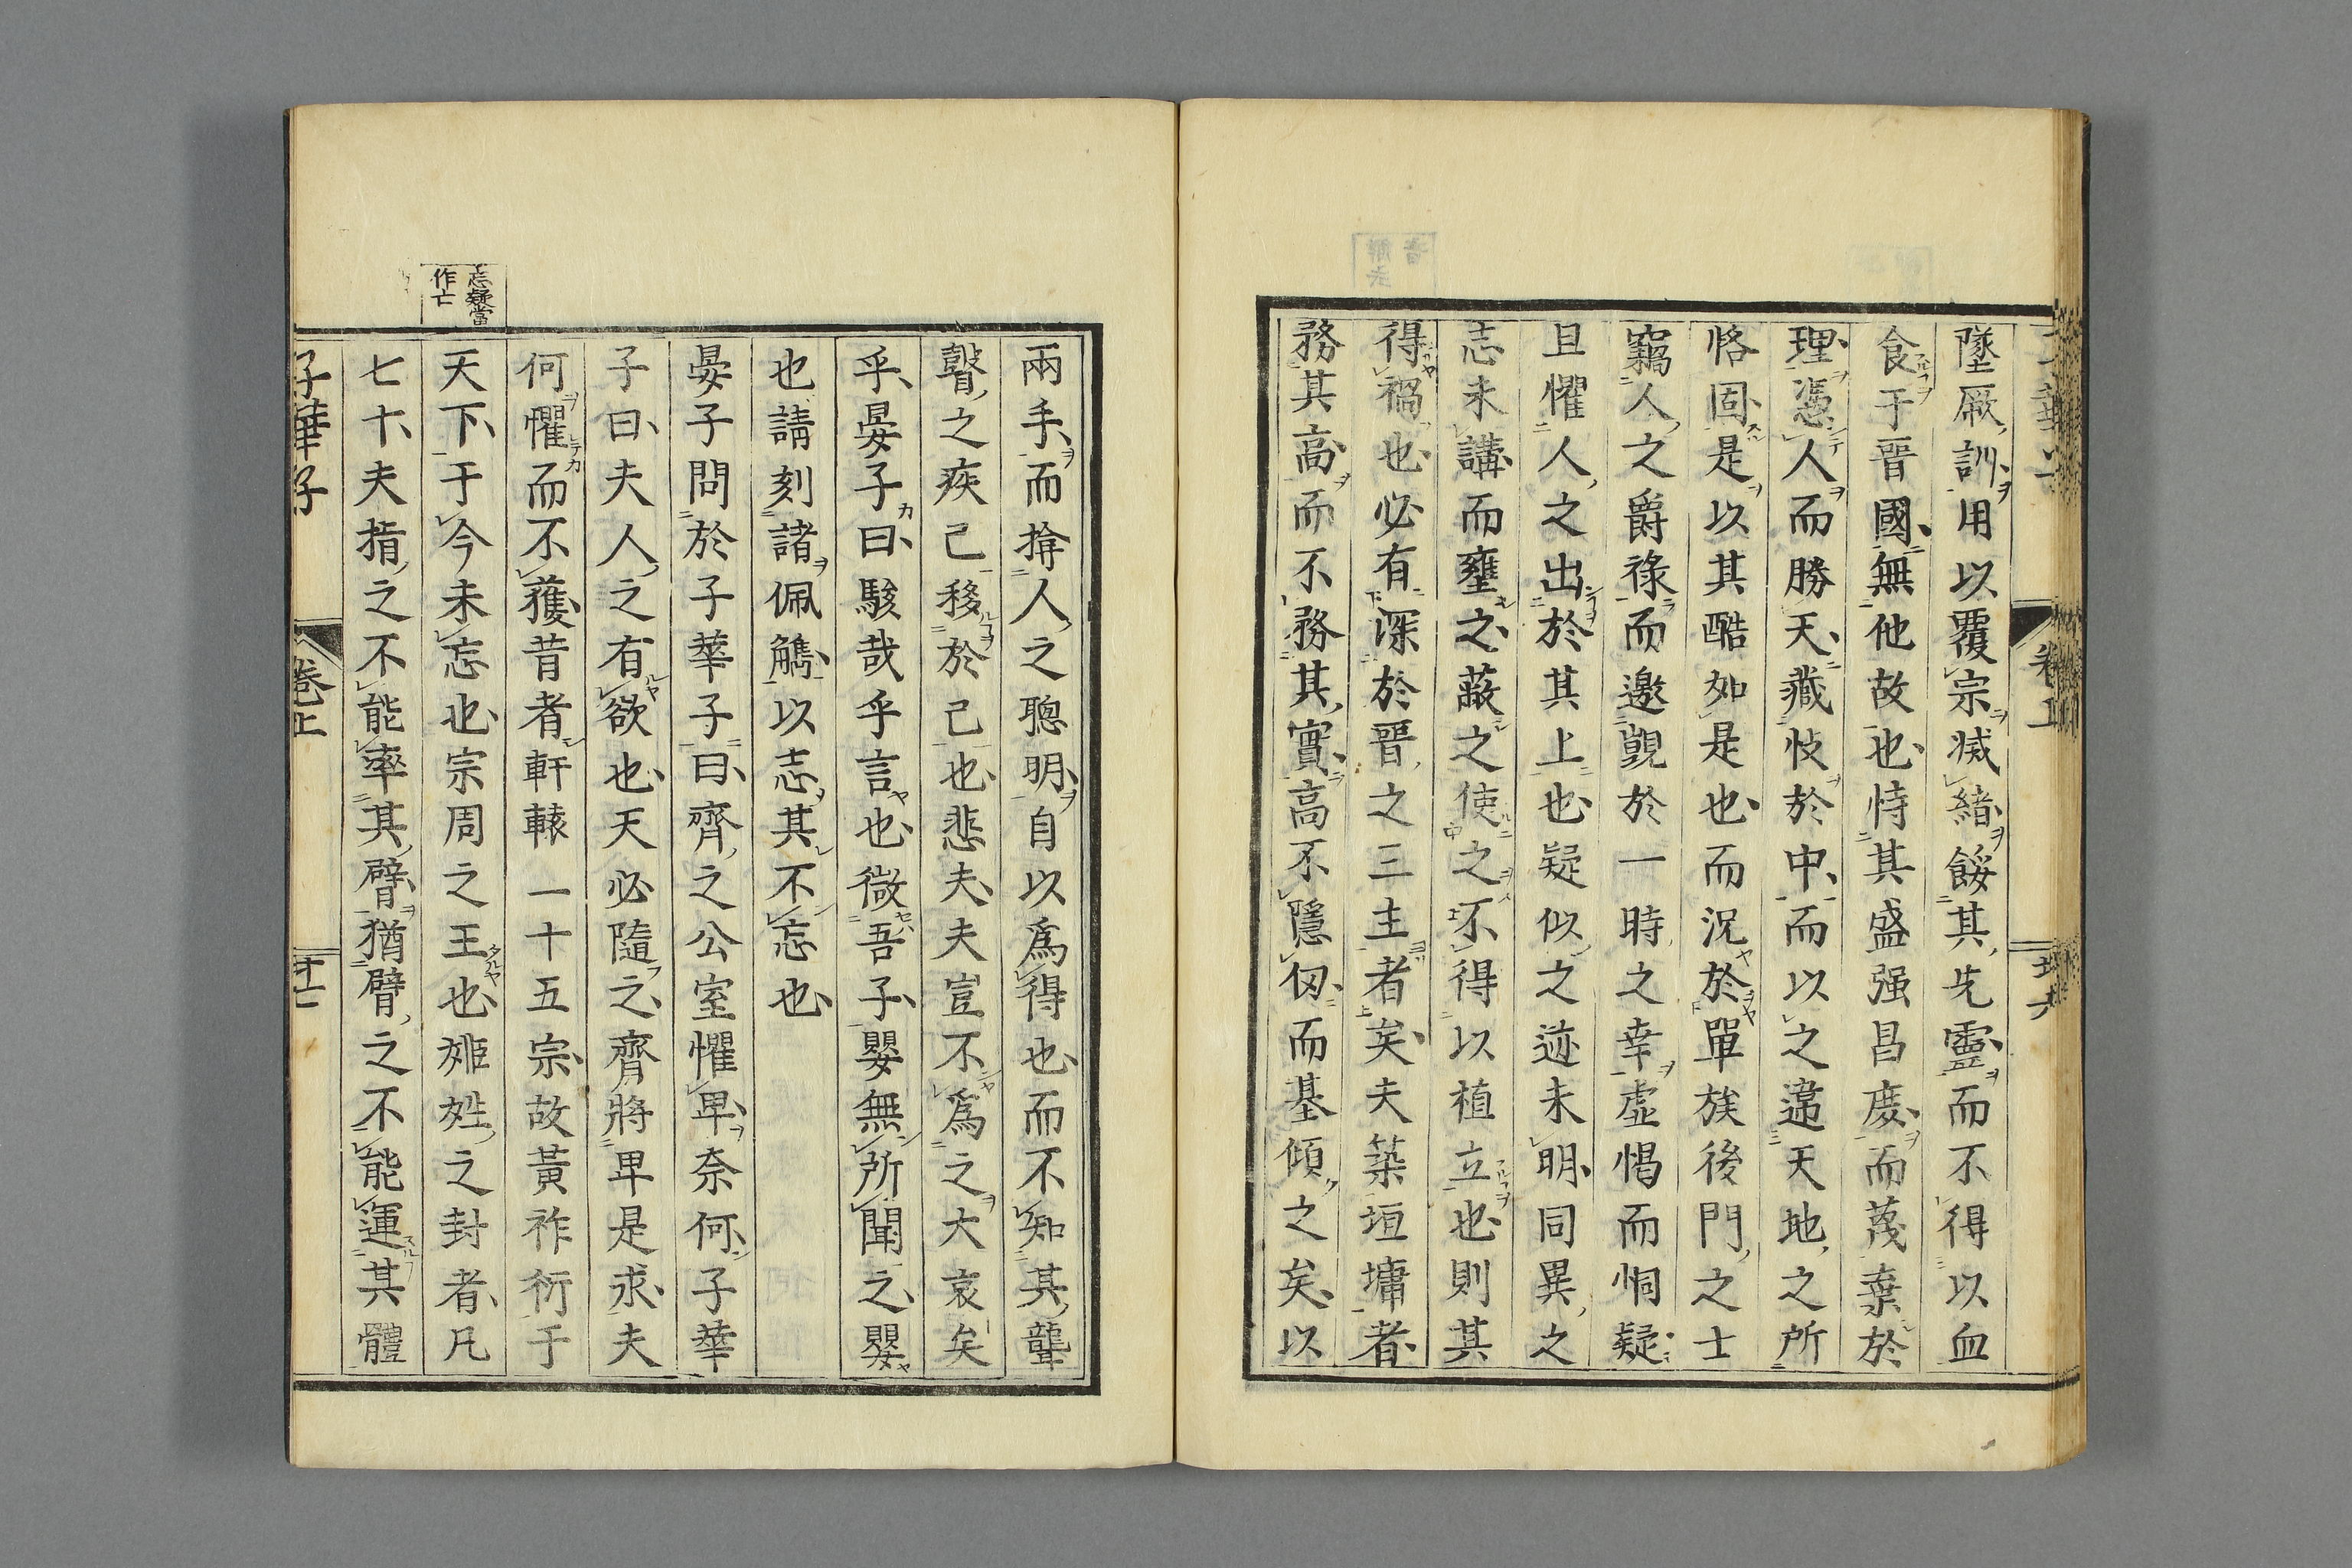 墜厥訓用以覆宗滅緒餒其先靈而不得以血
食于晉國無他故也恃其盛强昌庶而蔑棄於
理憑人而勝天藏忮於中而以之違天地之所
恪固是以其酷如是也而況於單族後門之士
竊人之爵祿而邀覬於一時之幸虛愒而恫疑
且懼人之出於其上也疑似之迹未明同異之
志未講而壅之蔽之使之不得以植立也則其
得禍也必有深於晉之三主者矣夫築垣墉者
務其高而不務其實高不隱仞而基傾之矣以
兩手而揜人之聰明自以爲得也而不知其聾
瞽之疾已移於己也悲夫夫豈不爲之大哀矣
乎晏子曰駭哉乎言也微吾子嬰無所聞之嬰
也請刻諸佩觿以志其不忘也
晏子問於子華子曰齊之公室懼卑奈何子華
子曰夫人之有欲也天必隨之齊將卑是求夫
何懼而不獲昔者軒轅一十五宗故黃祚衍于
天下于今未忘也宗周之王也姬姓之封者凡
七十夫指之不能率其臂猶臂之不能運其體
忘疑當
作亡
子華子
卷上
十七